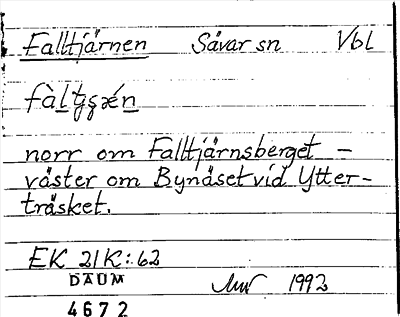 Falltjärnen Sävar sn Vbl
norr om Falltjärnsberget –
väster om Bynäset vid Ytter-
träsket.
EK 21K:62
DAUM 1992
4672